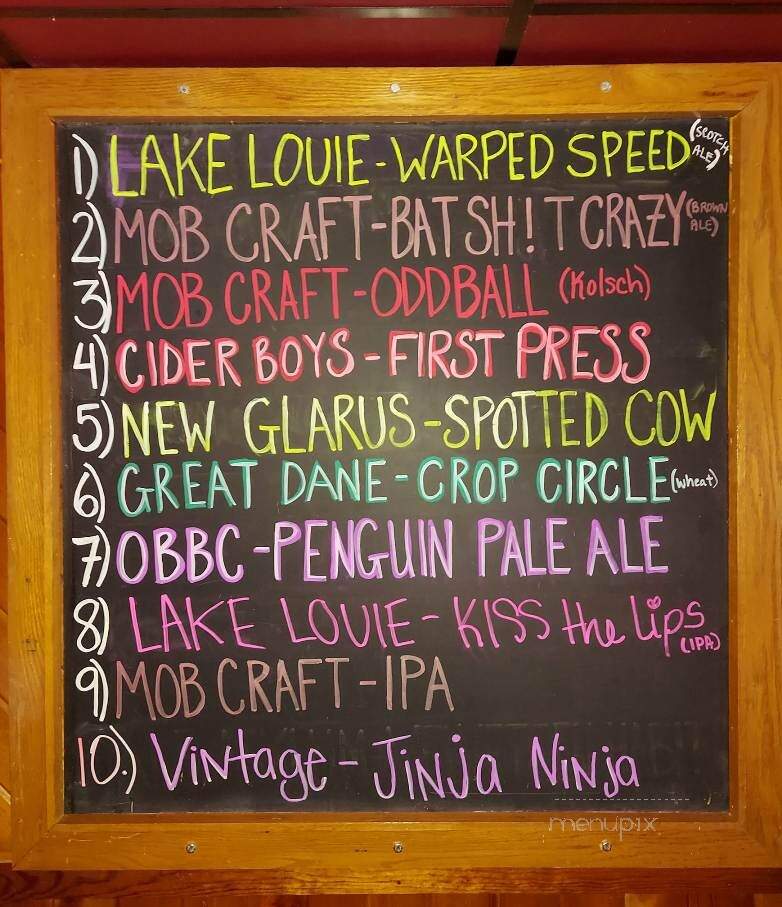 1) LAKE LOUIE-WARPED SPEED (SCOTCH ALE)
2) MOB CRAFT-BATSH!T CRAZY (BROWN ALE)
3) MOB CRAFT-ODDBALL (Kolsch)
4) CIDER BOYS-FIRST PRESS
5) NEW GLARUS-SPOTTED COW
6) GREAT DANE-CROP CIRCLE (wheat)
7) OBBC-PENGUIN PALE ALE
8) LAKE LOUIE-KISS the Lips (IPA)
9) MOB CRAFT-IPA
10.) Vintage-Jinja Ninja
menupix